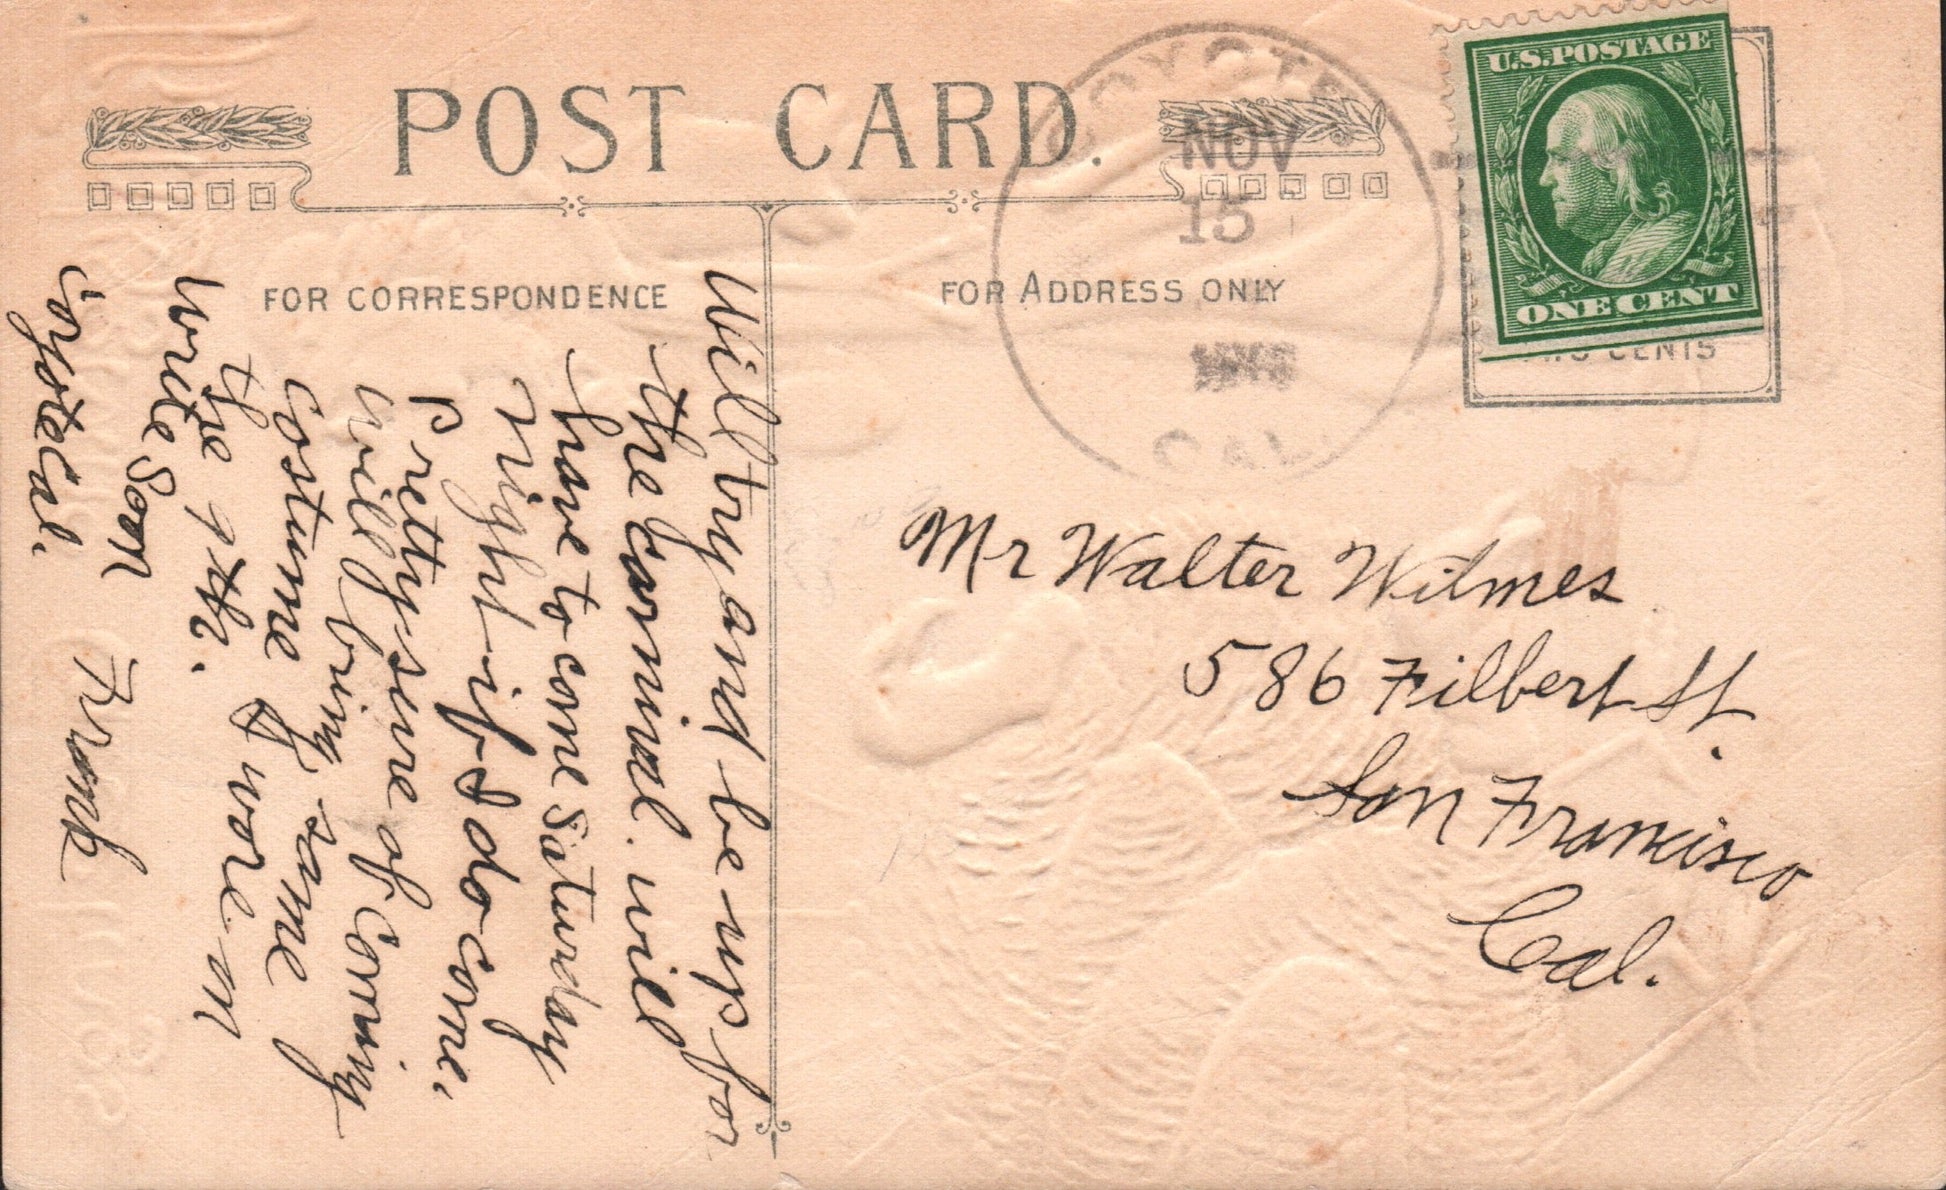 POST CARD.
FOR CORRESPONDENCE
FOR ADDRESS ONLY
COYOTE
NOV
15
CAL
U.S. POSTAGE
ONE CENT
TWO CENTS
Mr Walter Witmes
586 Filbert St.
San Francisco
Cal.
Will try and be up for
the Carnival. will
have to come Saturday
Night if I do come.
Pretty sure of Coming
will bring same
costume I wore on
the 9th.
Write Soon
Frank
Coyote Cal.